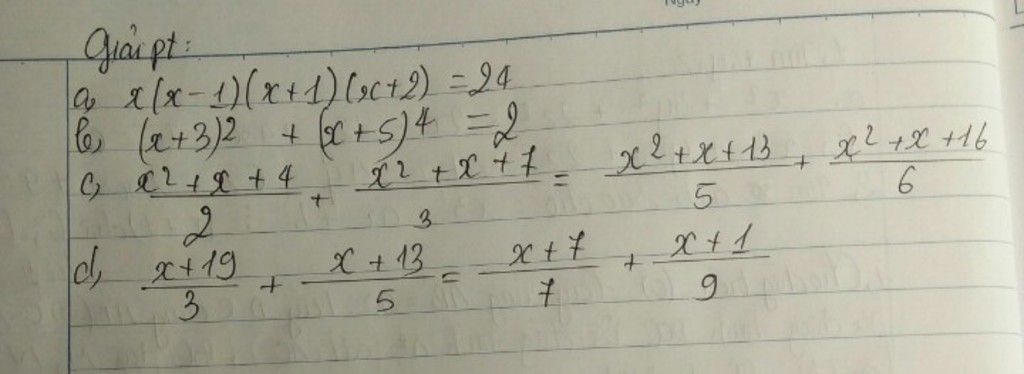 Giải pt:
a, x(x-1)(x+1)(x+2) = 24
b, (x+3)² + (x+5)⁴ = 2
c, (x²+x+4)/2 + (x²+x+7)/3 = (x²+x+13)/5 + (x²+x+16)/6
d, (x+19)/3 + (x+13)/5 = (x+7)/7 + (x+1)/9